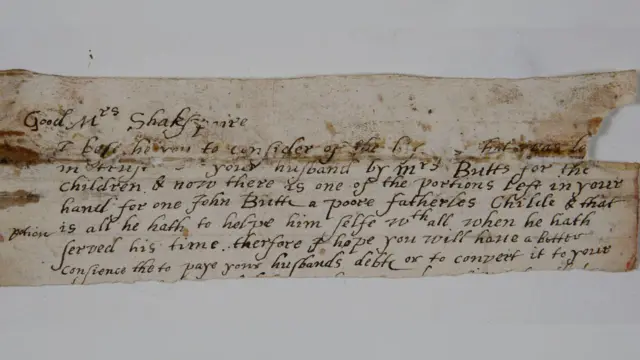 Good Mrs Shakspaire
I besehe you to consider of the
in trust your husband by mrs Butts for the
children & now there is one of the portions left in your
hand for one John Butte a poore fatherles Childe & that
is all he hath to helpe him selfe wth all when he hath
portion served his time. therfore I hope you will have a better
consience the to paye your husbands debte or to convert it to your